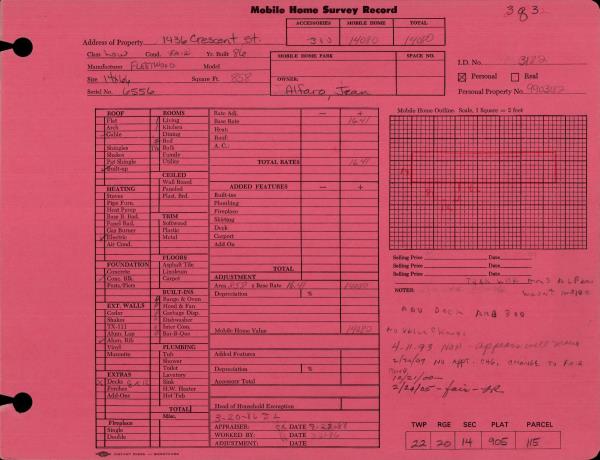 Mobile Home Survey Record
3 of 3
ACCESSORIES MOBILE HOME TOTAL
Address of Property 1436 Crescent St. 300 14080 14080
Class Low Cond. FAIR Yr. Built 86
Manufacturer FLEETWOOD Model
MOBILE HOME PARK SPACE NO.
I.D. No. 3182
Size 14x66 Square Ft. 858
Personal Real
OWNER: Alfaro, Jean
Serial No. 6556
Personal Property No. 990382
ROOF
Flat
Arch
Gable
Shingles
Shakes
Pat Shingle
Built-up
HEATING
Stoves
Pipe Furn.
Heat Pump
Base B. Rad.
Panel Rad.
Gas Burner
Electric
Air Cond.
FOUNDATION
Concrete
Conc. Blk.
Posts/Piers
EXT. WALLS
Cedar
Shaker
TX-111
Alum. Lap
Alum. Rib
Vinyl
Masonite
EXTRAS
Decks
Porches
Add-Ons
Fireplace
Single
Double
ROOMS
Living
Kitchen
Dining
Bed
Bath
Family
Utility
CEILED
Wall Board
Paneled
Plast. Brd.
TRIM
Softwood
Plastic
Metal
FLOORS
Asphalt Tile
Linoleum
Carpet
BUILT-INS
Range & Oven
Hood & Fan
Garbage Disp.
Dishwasher
Inter Com.
Bar-B-Que
PLUMBING
Tub
Shower
Toilet
Lavatory
Sink
H.W. Heater
Hot Tub
TOTAL
Misc.
Rate Adj. – +
Base Rate 16.41
Heat:
Roof:
A. C.:
TOTAL RATES 16.41
ADDED FEATURES – +
Built-ins
Plumbing
Fireplace
Skirting
Deck
Carport
Add On
TOTAL
ADJUSTMENT
Area 858 x Base Rate 16.41 14080
Depreciation %
Mobile Home Value 14080
Added Features
Depreciation %
Accessory Total
Head of Household Exemption
3-20-86
APPRAISER: DATE
WORKED BY: DATE
ADJUSTMENT: DATE
Mobile Home Outline. Scale, 1 Square = 2 feet
Selling Price Date
Selling Price Date
Selling Price Date
NOTES:
ADD Deck AND 300
4-11-93
10/21/00
2/24/05 - fair
TWP RGE SEC PLAT PARCEL
22 20 14 905 115